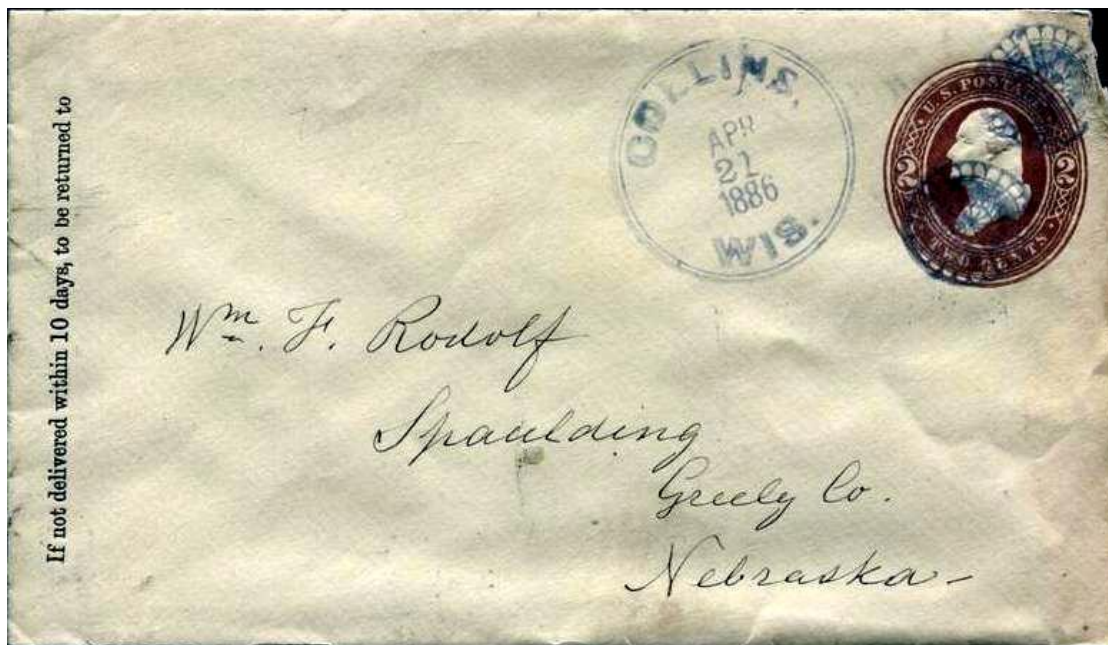 If not delivered within 10 days, to be returned to
COLLINS,
APR
21
1886
WIS.
U.S. POSTAGE
2 2
TWO CENTS
Wm. F. Rodolf
Spaulding
Greely Co.
Nebraska